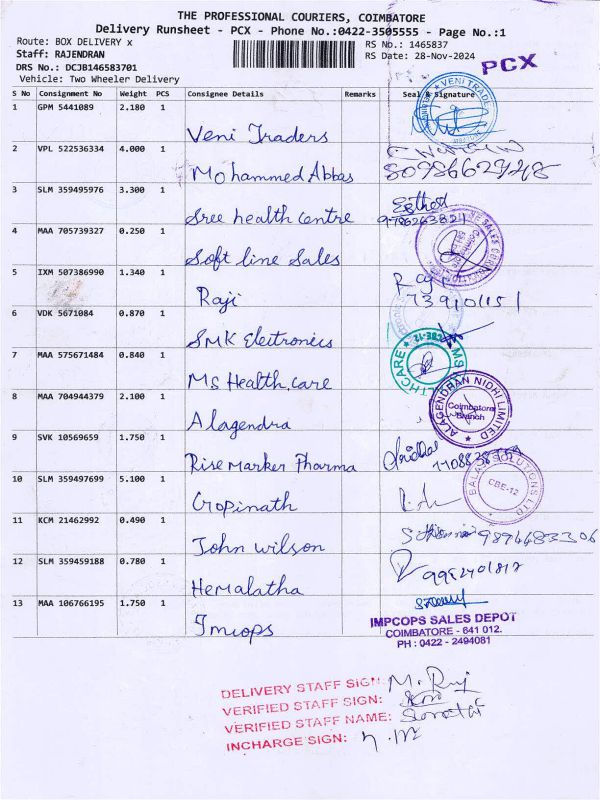 THE PROFESSIONAL COURIERS, COIMBATORE
Delivery Runsheet - PCX - Phone No.:0422-3505555 - Page No.:1
Route: BOX DELIVERY x
RS No.: 1465837
Staff: RAJENDRAN
RS Date: 28-Nov-2024
DRS No.: DCJB146583701
PCX
Vehicle: Two Wheeler Delivery
S No Consignment No Weight PCS Consignee Details Remarks Seal & Signature
1 GPM 5441089 2.180 1
Veni Traders
VENI TRADE
2 VPL 522536334 4.000 1
Mohammed Abbas 8098662748
3 SLM 359495976 3.300 1
Sree health centre
4 MAA 705739327 0.250 1
Soft line Sales
SALES
5 IXM 507386990 1.340 1
Raji Raji
6 VDK 5671084 0.870 1
SMK Electronics
7 MAA 575671484 0.840 1
Ms Health care
MS HEALTHCARE CBE-12
8 MAA 704944379 2.100 1
Alagendra
ALAGENDRAN NIDHI LIMITED
Coimbatore Branch
9 SVK 10569659 1.750 1
Rise Marker Pharma
10 SLM 359497699 5.100 1
Gopinath
SOLUTIONS
CBE-12
11 KCM 21462992 0.490 1
John wilson
12 SLM 359459188 0.780 1
Hemalatha
13 MAA 106766195 1.750 1
Imcops
IMPCOPS SALES DEPOT
COIMBATORE - 641 012.
PH : 0422 - 2494081
DELIVERY STAFF SIGN: M. Raj
VERIFIED STAFF SIGN:
VERIFIED STAFF NAME:
INCHARGE SIGN: